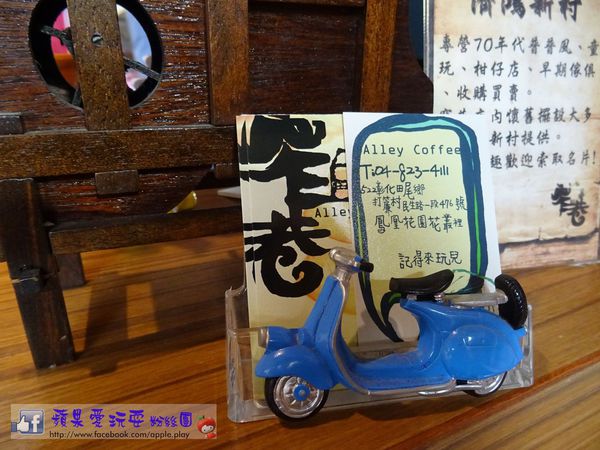 濟鴻新村
專營70年代普普風、童
玩、柑仔店、早期傢俱
、收購買賣。
內懷舊擺設大多
新村提供。
趣歡迎索取名片!
窄巷
窄巷
Alley
Alley Coffee
T:04-823-4111
522彰化田尾鄉
打簾村民生路一段476號
鳳凰花園花叢裡
記得來玩兒
蘋果愛玩耍 粉絲團
http://www.facebook.com/apple.play